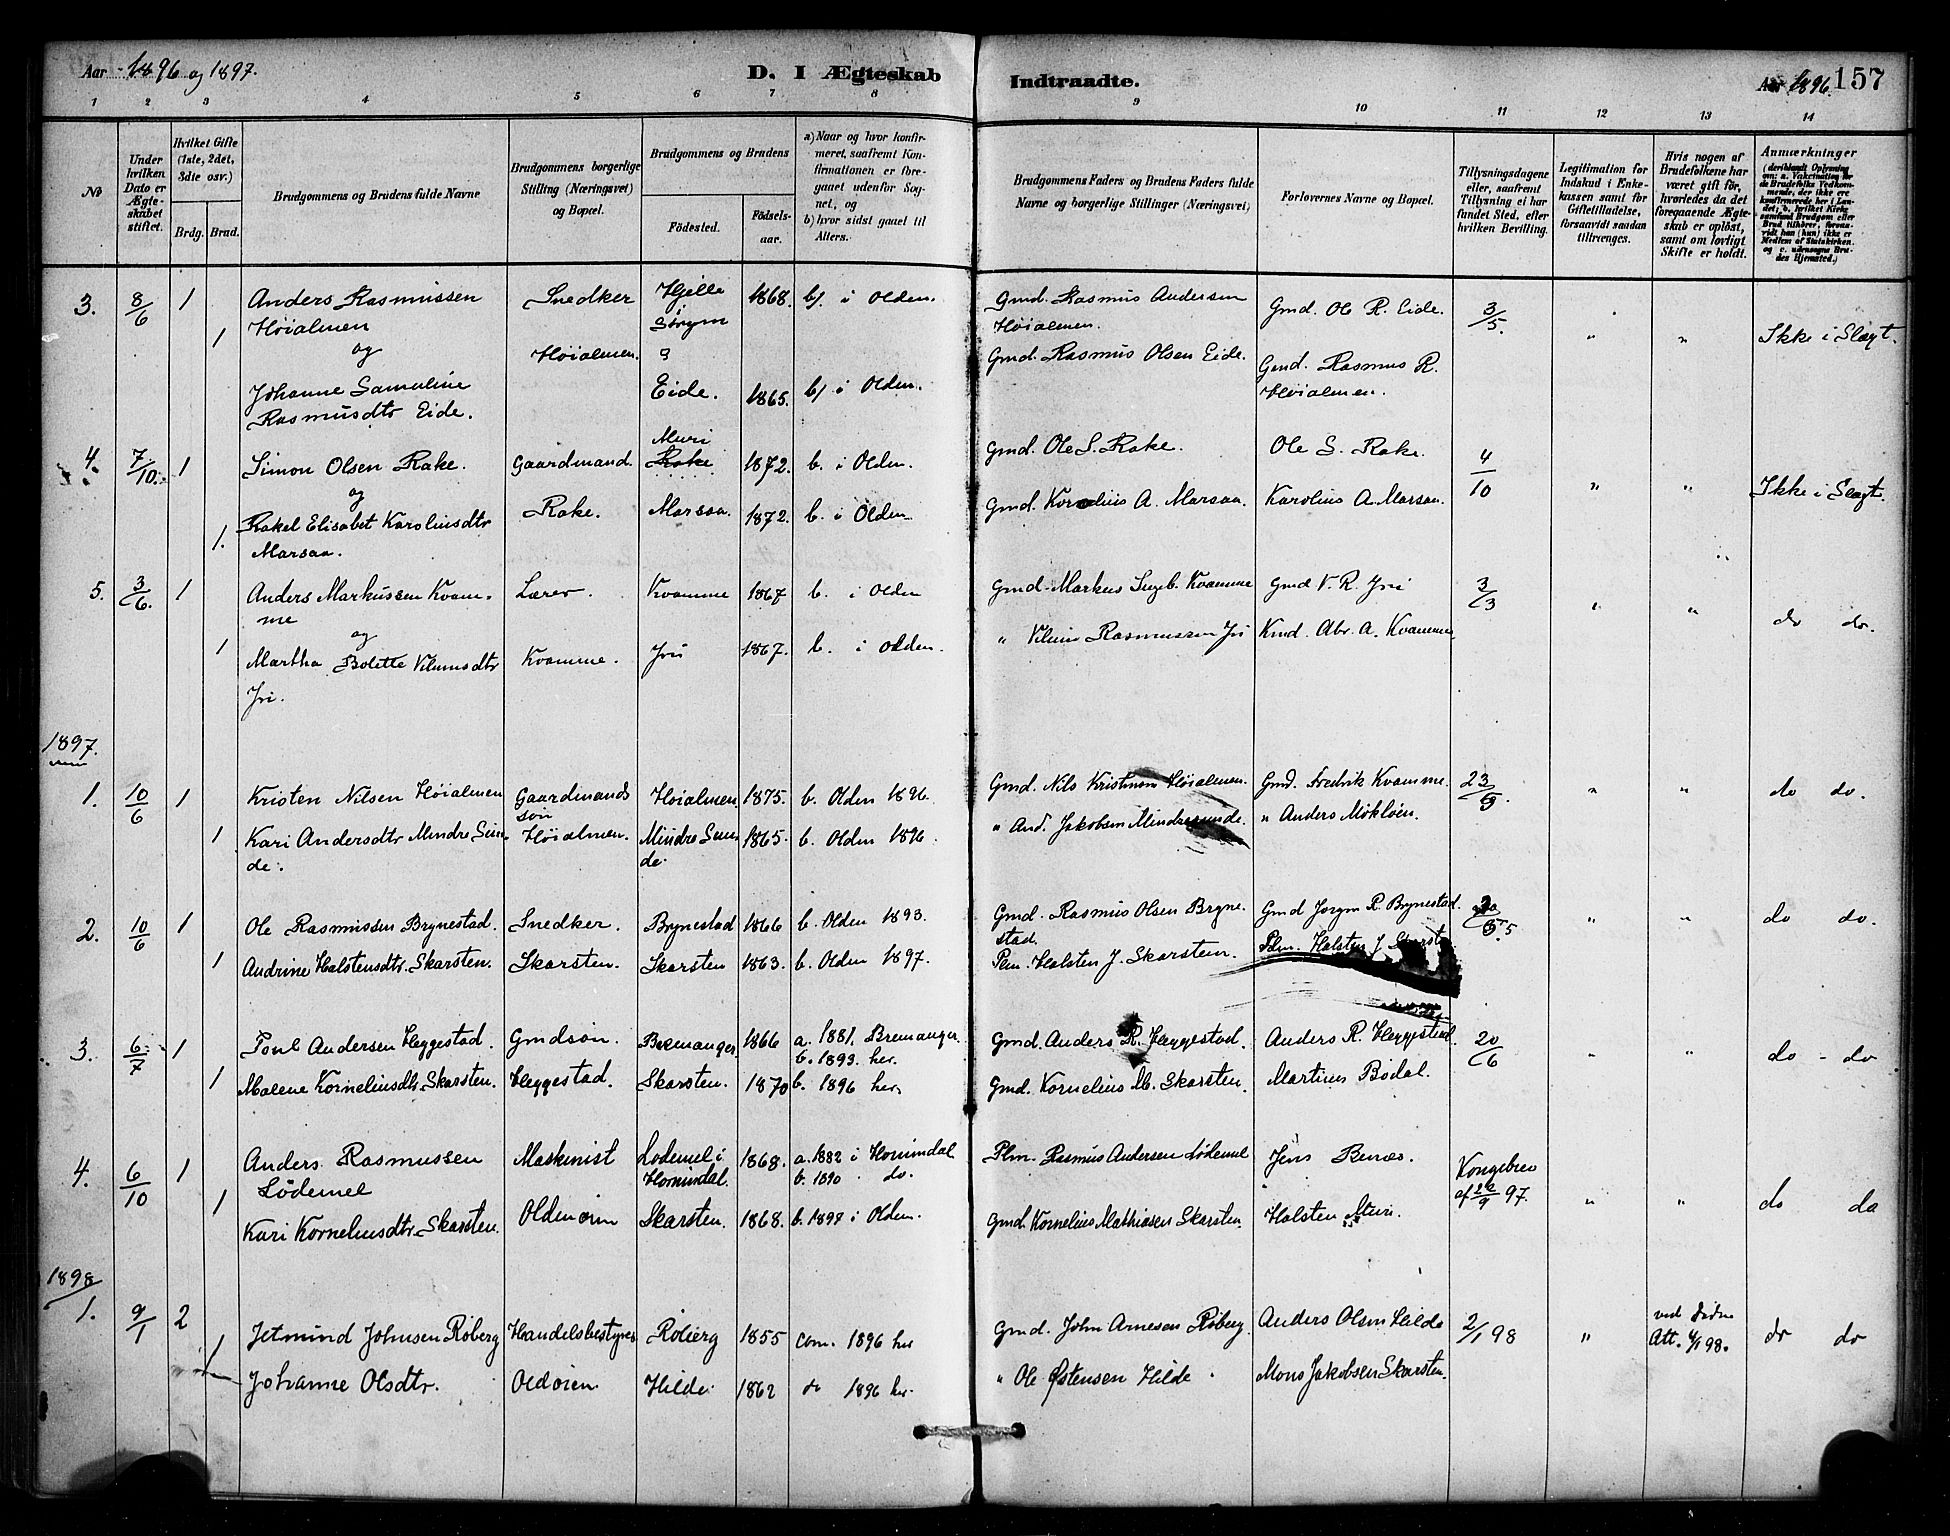 Aar 1896 og 1897.
D. I Ægteskab
Indtraadte.
Aar 1896. 157
1 2 3 4 5 6 7 8 9 10 11 12 13 14
No
Under hvilken Dato er Ægteskabet stiftet.
Hvilket Gifte (1ste, 2det, 3dte osv.)
Brdg. Brud.
Brudgommens og Brudens fulde Navne
Brudgommens borgerlige Stilling (Næringsvei) og Bopæl.
Brudgommens og Brudens
Fødested.
Fødselsaar.
a) Naar og hvor konfirmeret, saafremt Konfirmationen er foregaaet udenfor Sognet, og
b) hvor sidst gaaet til Alters.
Brudgommens Faders og Brudens Faders fulde Navne og borgerlige Stillinger (Næringsvei)
Forlovernes Navne og Bopæl.
Tillysningsdagene eller, saafremt Tillysning ei har fundet Sted, efter hvilken Bevilling.
Legitimation for Indskud i Enkekassen samt for Giftetilladelse, forsaavidt saadan tiltrænges.
Hvis nogen af Brudefolkene har været gift før, hvorledes da det foregaaende Ægteskab er opløst, samt om lovligt Skifte er holdt.
Anmærkninger
3. 8/6 1 Anders Rasmussen Snedker Hjelle 1868. b/. i Olden. Gmd. Rasmus Andersen Gmd. Ole R. Eide. 3/5.
Høialmen Strym Høialmen.
1 og Høialmen. Gmd. Rasmus Olsen Eide. Gmd. Rasmus R. " " Ikke i Slægt.
Johanne Samuline Eide. 1865. b/ i Olden. Høialmen.
Rasmusdtr Eide.
Muri
4. 7/10. 1 Simon Olsen Rake. Gaardmand. Rake 1872. b. i Olden. Gmd. Ole S. Rake. Ole S. Rake. 4/10 " " Ikke i Slægt.
og
1. Rakel Elisabet Karoliusdtr Rake. Marsaa. 1872. b. i Olden Gmd. Karolius A. Marsaa. Karolius A. Marsaa.
Marsaa.
5. 3/6. 1 Anders Markussen Kvam- Lærer. Kvamme 1867 b. i Olden Gmd. Markus Ingeb. Kvamme Gmd V. R. Jri 3/3 " " do do.
me
og
1 Martha Bolette Vilumsdtr Kvamme. Jri 1867. b. i Olden. " Vilum Rasmussen Jri Kmd. Abr. A. Kvamme
Jri.
1897.
1. 10/6 1 Kristen Nilsen Høialmen Gaardmands Høialmen. 1875. b. Olden 1896. Gmd. Nils Kristensen Høialmen. Gmd. Fredrik Kvamme. 23/5. " " do do.
søn
1 Kari Andersdtr Mindre Sun- Høialmen. Mindre Sun- 1865. b. Olden 1896. " And. Jakobsen Mindresunde. " Anders Mokløen.
de. de.
2. 10/6 1 Ole Rasmussen Brynestad. Snedker. Brynestad 1866 b. Olden 1893. Gmd. Rasmus Olsen Bryne- Gmd Jørgen R. Brynestad. " " do do.
stad.
1 Andrine Halstensdtr. Skarsten. Skarsten. Skarsten 1863. b. Olden 1897. Plm. Halsten J. Skarsten. Plm. Halsten J. Skarsten
3. 6/7 1 Poul Andersen Heggestad. Gmdsøn. Bremanger 1866 a. 1881. Bremanger Gmd. Anders R. Heggestad. Anders R. Heggestad. 20/6 " " do - do
b. 1893. her.
1 Malene Kornelius​dtr. Skarsten. Heggestad. Skarsten. 1870 b. 1896 her. Gmd. Kornelius M. Skarsten. Martinus Bødal.
4. 6/10 1 Anders Rasmussen Maskinist Lødemel i 1868. a. 1882 i Hornindal Plm. Rasmus Andersen Lødemel Jens Benæs. Kongebrev
Lødemel Hornindal. b. 1890 do. af 22/9 97. " " do do
1 Kari Korneliusdtr. Skarsten. Oldenøren Skarsten. 1868. b. 1897 i Olden. Gmd. Kornelius Mathiasen Skarsten. Halsten Muri.
1898
1. 9/1 2 Jetmund Johnsen Røberg Handelsbestyrer Røberg 1855 Com. 1896 her Gmd. John Arnesen Røberg. Anders Olsen Hilde 2/1 98 " Att. 4/1 98. do do
1 Johanne Olsdtr. Oldøren Hilde 1862 do 1896 her. " Ole Østensen Hilde Mons Jakobsen Skarsten.